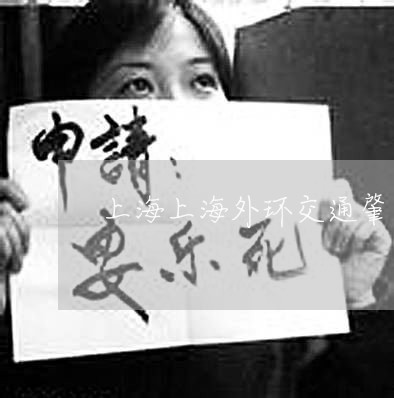 申請：
上海上海外环交通肇
安乐死